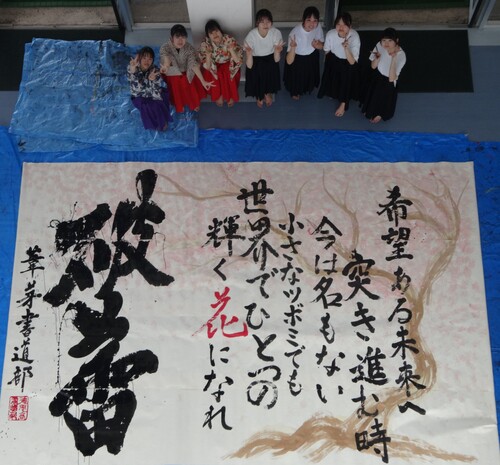 希望ある未来へ
突き進む時
今は名もない
小さなツボミでも
世界でひとつの
輝く花になれ
破土雷
葦芽書道部